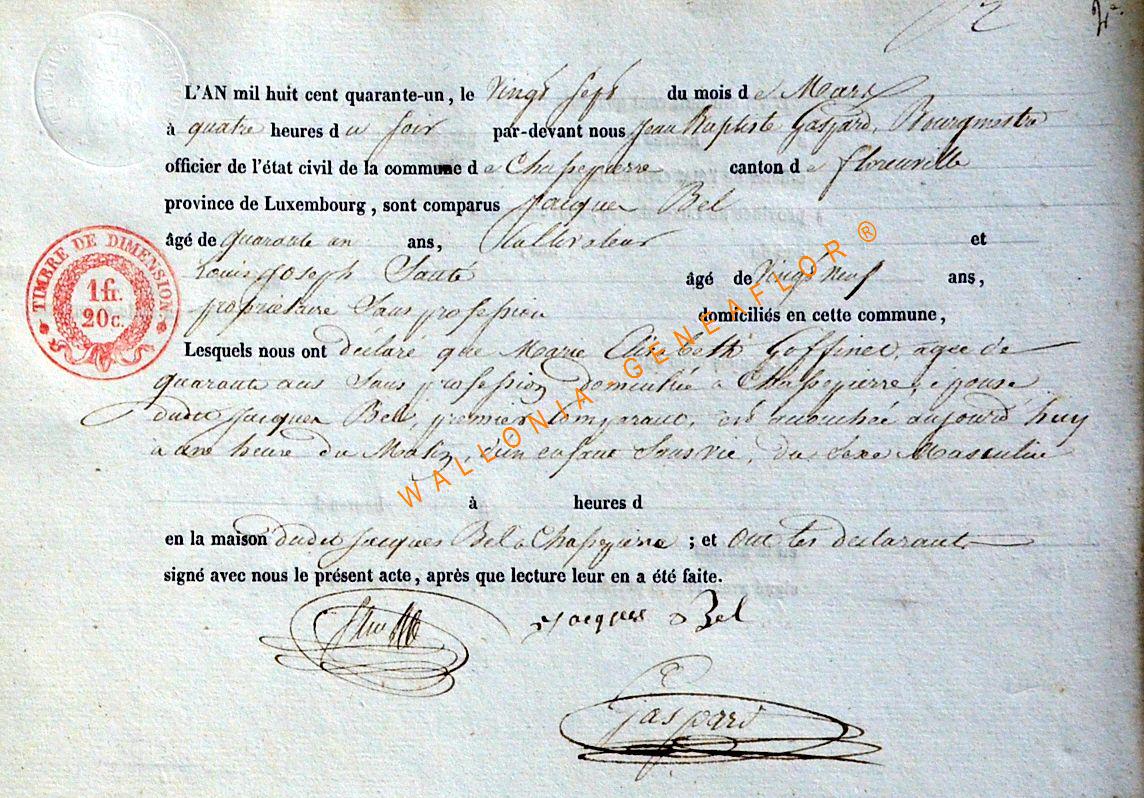 L'AN mil huit cent quarante-un, le Vingt Sept du mois de Mars
à quatre heures du Soir par-devant nous Jean Baptiste Gaspard, Bourgmestre
officier de l'état civil de la commune de Chassepierre canton de florenville
province de Luxembourg, sont comparus Jacques Bel
âgé de quarante an ans, Cultivateur et
Louis Joseph âgé de Vingt neuf ans,
propriétaire Sans profession domiciliés en cette commune,
Lesquels nous ont déclaré que Marie Elisabeth Goffinet, agée de
quarante ans Sans profession domiciliée à Chassepierre, épouse
dudit Jacques Bel, premier Comparant, est accouchée aujourd'huy
à une heure du Matin, d'un enfant Sans vie, du Sexe Masculin
à heures d
en la maison dudit Jacques Bel à Chassepierre ; et ont les déclarants
signé avec nous le présent acte, après que lecture leur en a été faite.
Jacques Bel
Gaspard
TIMBRE DE DIMENSION
1 fr.
20 c.
WALLONIA GENEAFLOR ®